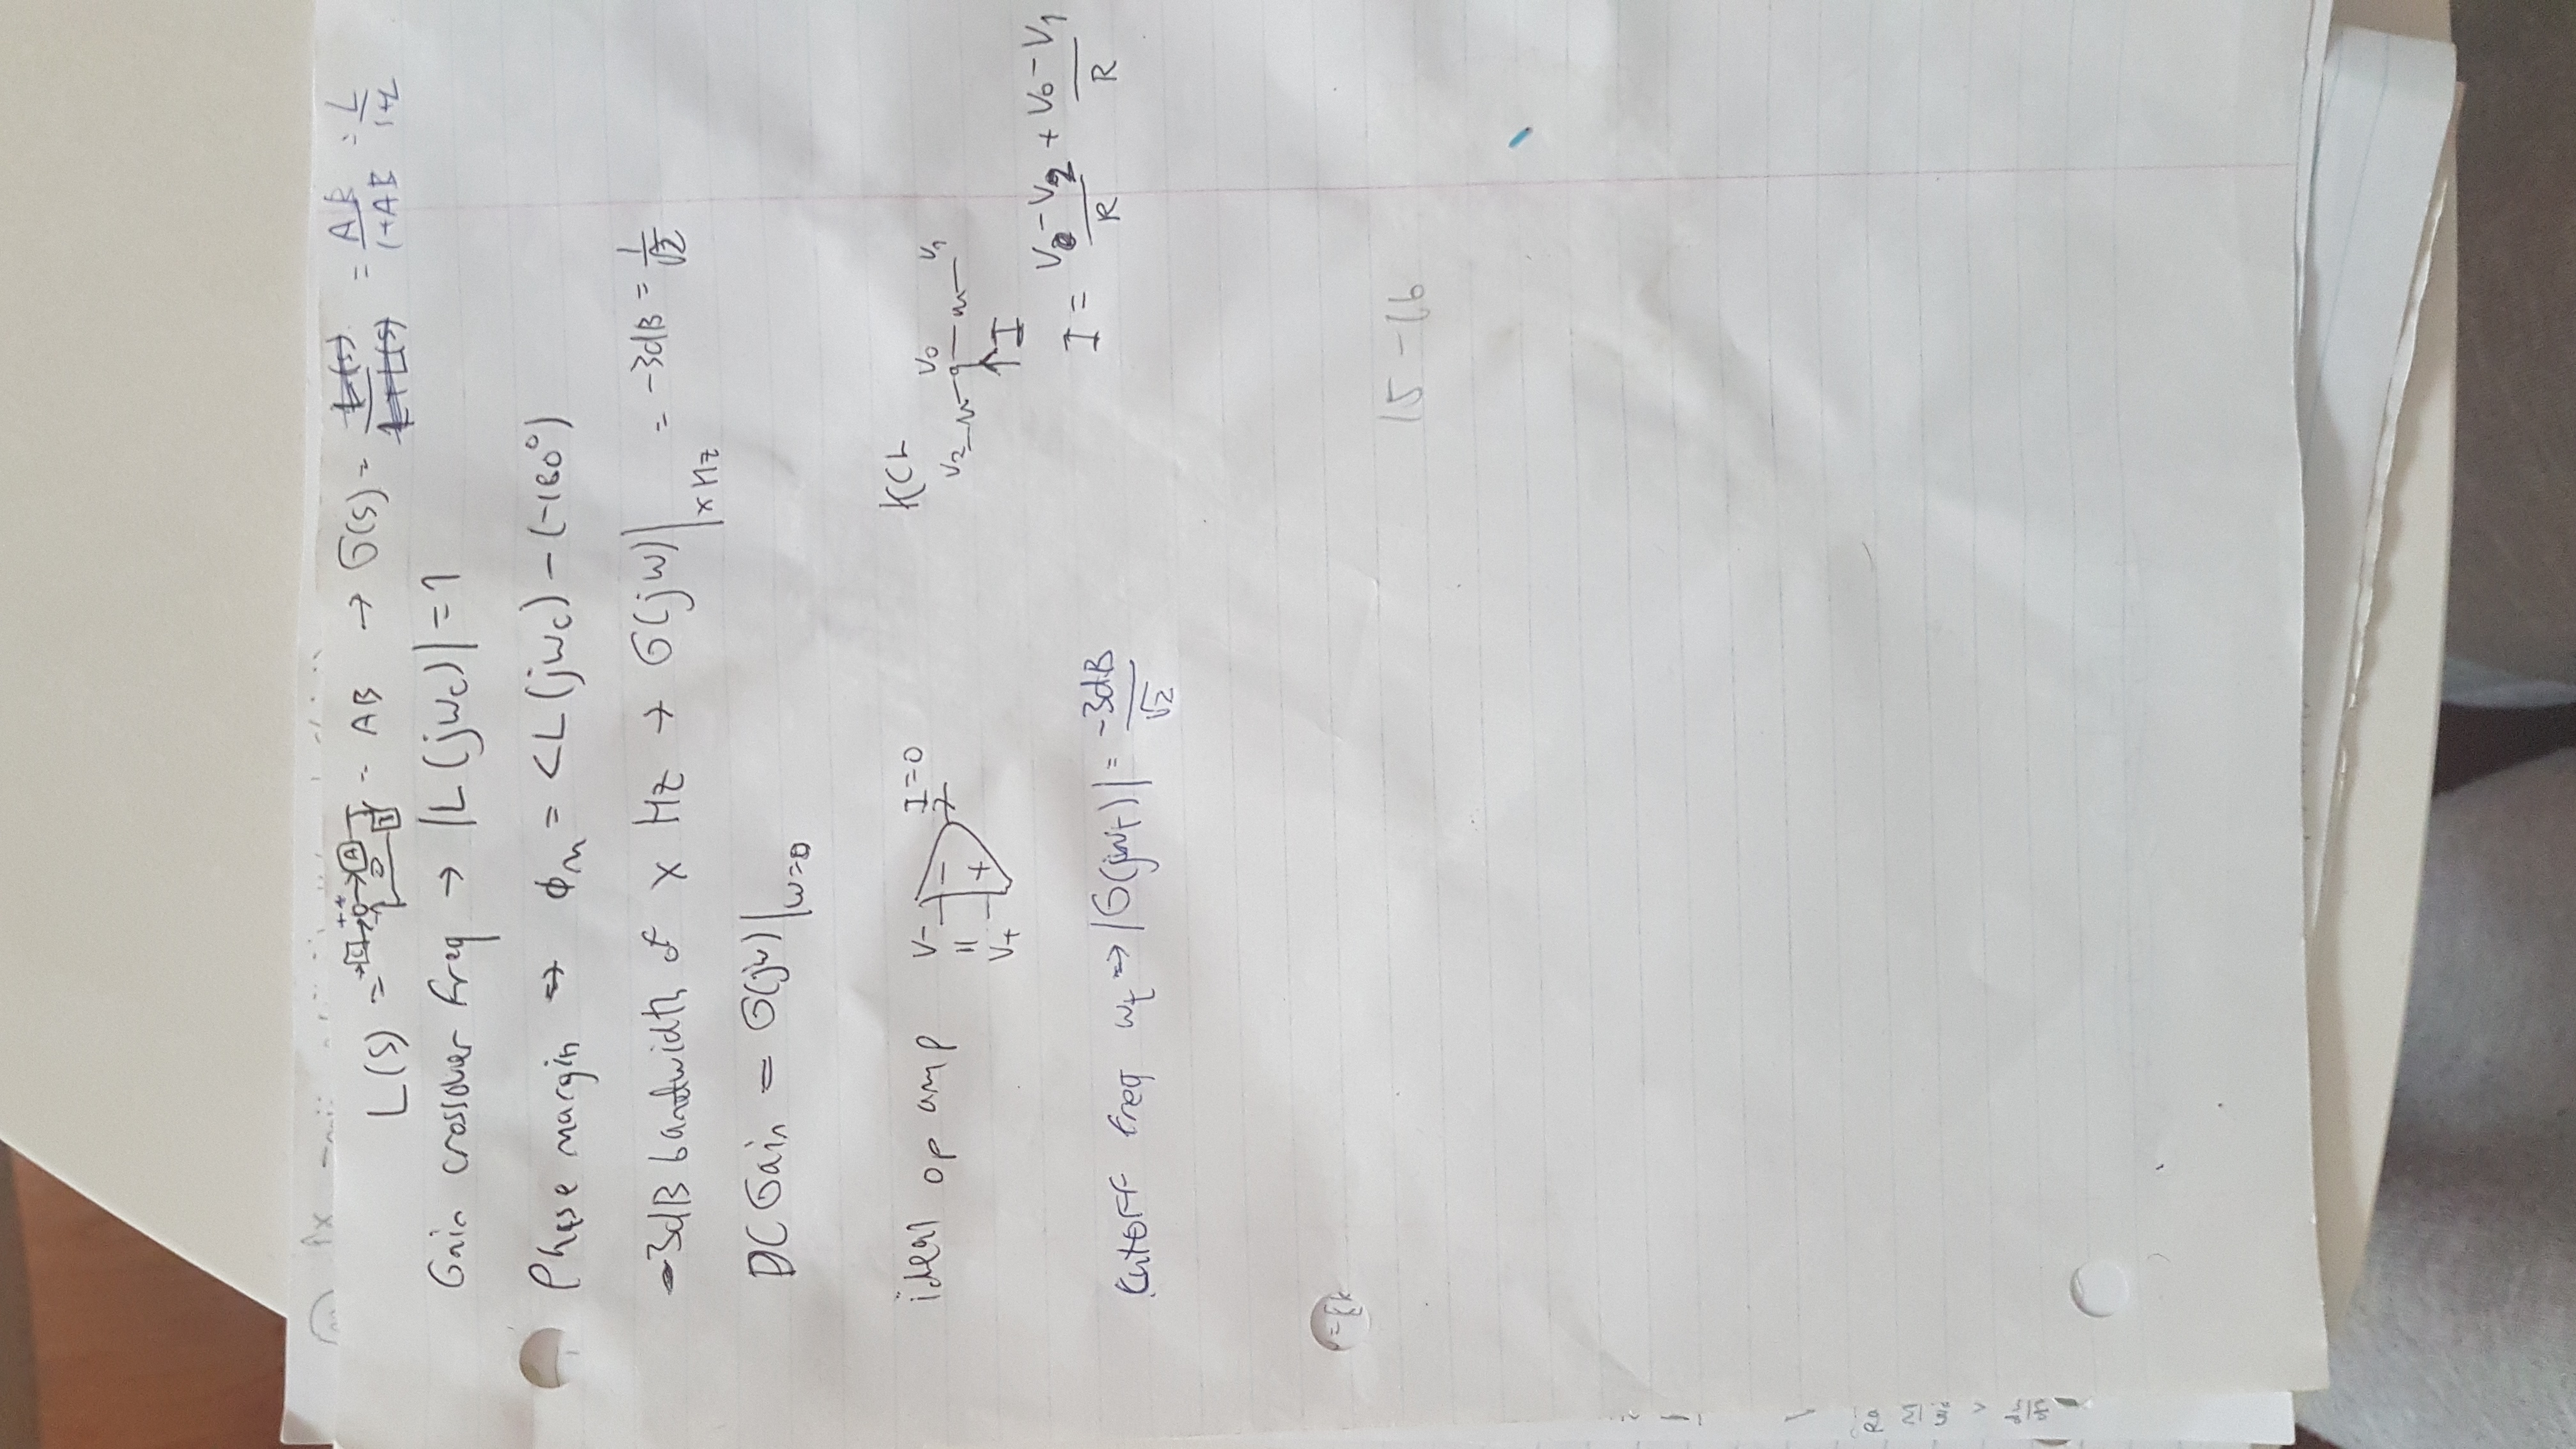 L(s) = C + + A B = AB → G(s) = L(s) / 1+L(s) = AB / 1+AB = L / 1+L
Gain crossover freq → |L(jωc)| = 1
Phase margin → ϕm = <L(jωc) - (-180°)
-3dB bandwidth of x Hz → G(jω)| x Hz = -3dB = 1/√2
DC Gain = G(jω)| ω=0
ideal op amp V- = V+ - + I=0
KCL
V2 V0 V1
I
I = V0-V2 / R + V0-V1 / R
Cutoff freq ωt → |G(jωt)| = -3dB / √2
15-16